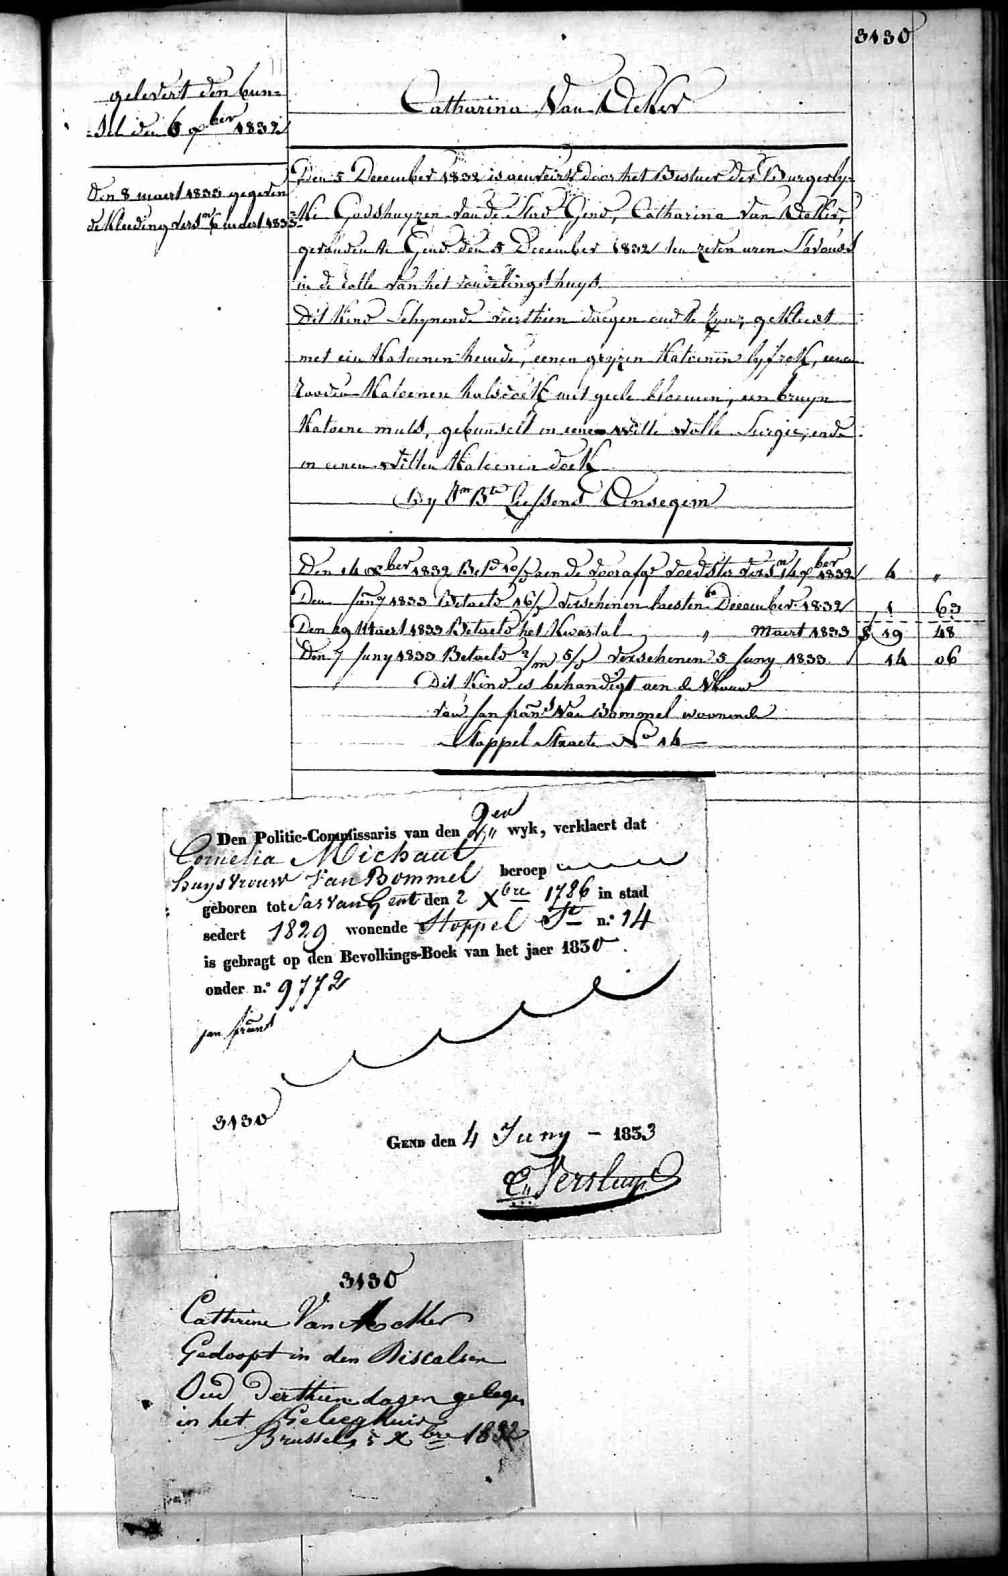 3130
gelevert den bun=
=sel den 6 xber 1832
Den 8 maert 1833 gegeven
de kleeding vers 6 maert 1833
Catharina Van Acker
Den 5 December 1832 is aenveird door het Bestuer der Burgerly-
ke Godshuyzen van de Stad Gend, Catharina Van Acker,
gevonden te Gend den 5 December 1832 ten zeven uren s'avonds
in de rolle van het vondelingshuys
Dit Kind schynende veerthien daegen oud te zyn, gekleed
met een Katoenen hemde, eenen gryzen Katoenen lyfrok, eenen
rooden Katoenen halsdoek met geele bloemen, een bruyn
Katoene muts, gebunselt in eene witte wolle Sargie, ende
in eenen witten Katoenen doek
By Ansegem
Den 14 xber 1832 Bet aen de voorafge voedster vers 14 xber 1832 4 "
Den Jany 1833 Betaeld verschenen lesten December 1832 1 63
Den 29 Maert 1833 Betaeld het Kwartal " Maert 1833 $ 19 48
Den 7 Juny 1833 Betaeld 2/m 5/d verschenen 5 Juny 1833 14 06
Dit Kind is behandigt aen de Vrouw
van Jan frans Van Bommel woonende
Stoppel Straete No 14
Den Politie-Commissaris van den 2en wyk, verklaert dat
Cornelia Michaut
huysvrouw Van Bommel beroep
geboren tot Sas Van Gent den 2 Xbre 1786 in stad
sedert 1829 wonende Stoppel St n.o 14
is gebragt op den Bevolkings-Boek van het jaer 1830
onder n.o 9772
jan frans
3130
GEND den 4 Juny - 1833
C. Versluys
3130
Cathrine Van Acker
Gedoopt in den
Oud Derthien dagen gelegen
in het
Brussels 5 Xbre 1832